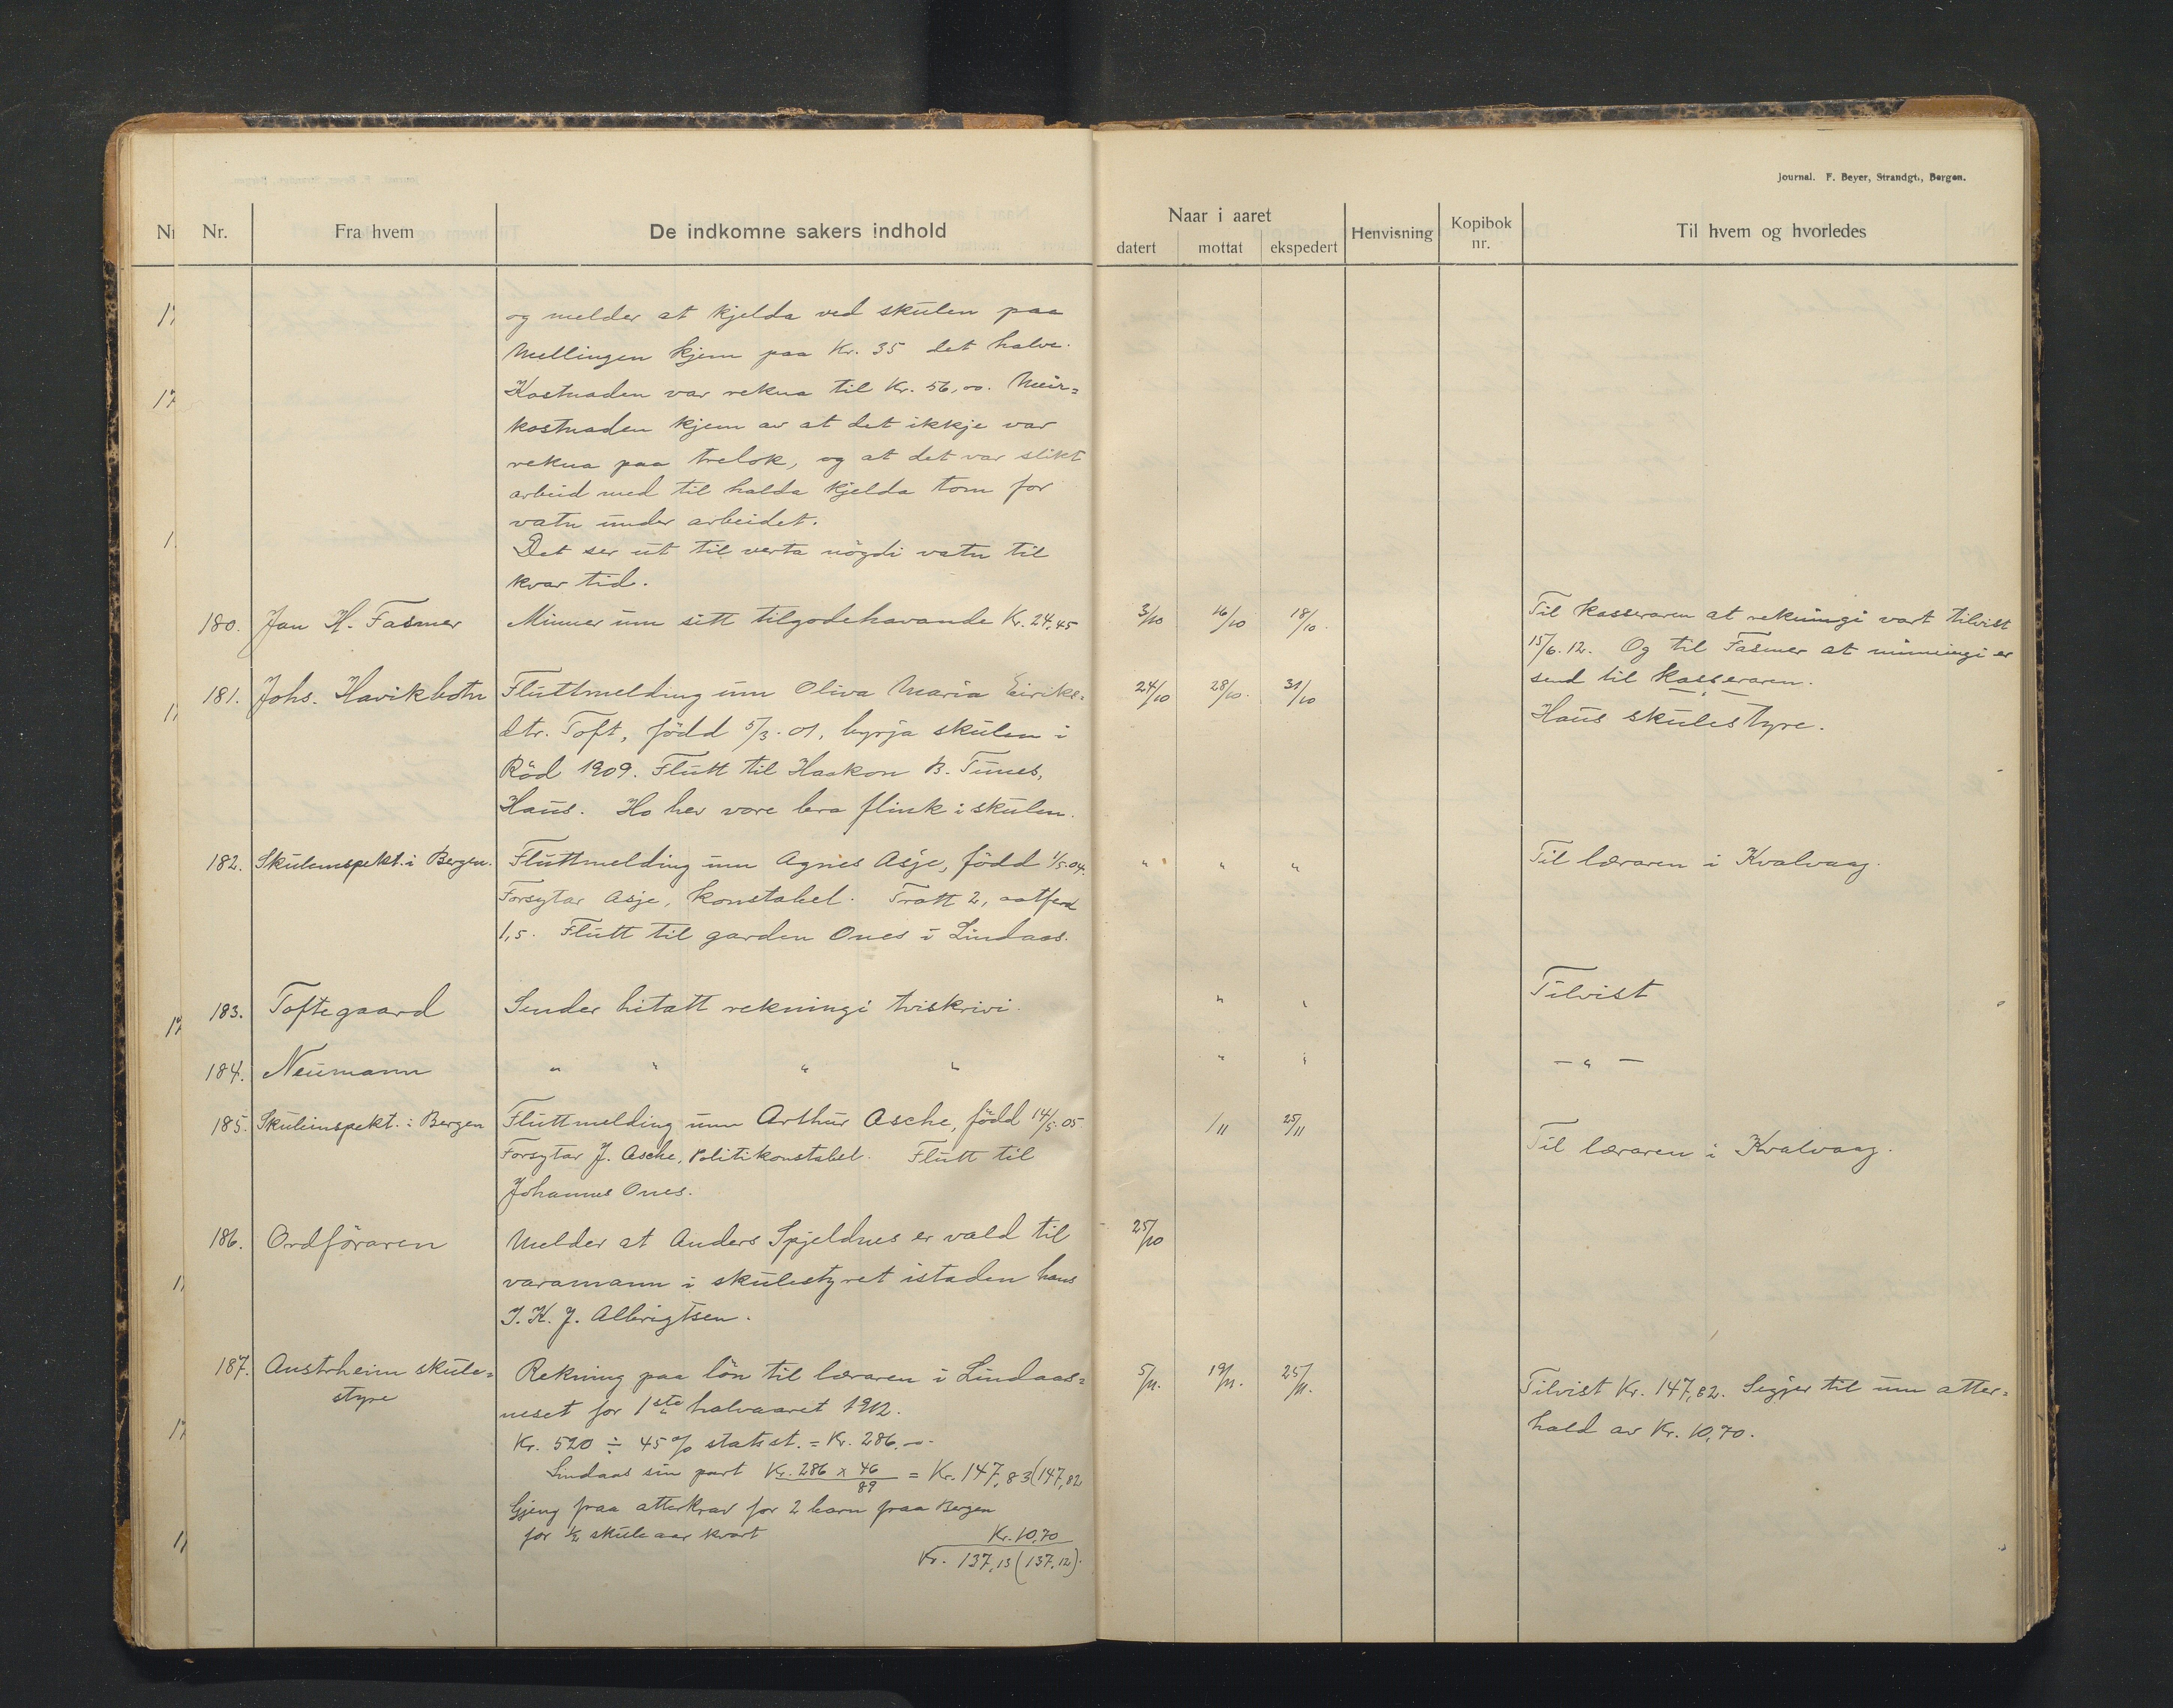 Journal. F. Beyer, Strandgt., Bergen.
Nr. Fra hvem De indkomne sakers indhold Naar i aaret Henvisning Kopibok nr. Til hvem og hvorledes
datert mottat ekspedert
og melder at kjelda ved skulen paa
Mellingen kjem paa Kr. 35 det halve.
Kostnaden var rekna til Kr. 56,00. Meir=
kostnaden kjem av at det ikkje var
rekna paa trelok, og at det var slikt
arbeid med til halda kjelda tom for
vatn under arbeidet.
Det ser ut til verta nögdi vatn til
kvar tid.
180. Jan H. Fasmer Minner um sitt tilgodehavande Kr. 24,45 3/10 16/10 18/10. Til kasseraren at rekningi vart tilvist
15/6.12. Og til Fasmer at minningi er
send til kasseraren.
181. Johs. Havikbotn Fluttmelding um Oliva Maria Eiriks= 24/10 28/10. 31/10 Haus skulestyre.
dtr. Toft, född 5/3.01, byrja skulen i
Röd 1909. Flutt til Haakon B. Tunes,
Haus. Ho hev vore bra flink i skulen.
182. Skuleinspekt. i Bergen. Fluttmelding um Agnes Asje, född 1/5.04. " " " Til læraren i Kvalvaag.
Forsytar Asje, konstabel. Trott 2, aatferd
1,5. Flutt til garden Ones i Lindaas.
183. Toftegaard Sender hitatt rekningi tviskrivi. " " Tilvist
184. Neumann " " " " " " — " —
185. Skuleinspekt. i Bergen Fluttmelding um Arthur Asche, född 14/5.05 /11 25/11 Til læraren i Kvalvaag.
Forsytar J. Asche, Politikonstabel. Flutt til
Johannes Ones.
186. Ordföraren Melder at Anders Spjeldnes er vald til 25/10
varamann i skulestyret istaden hans
I. K. J. Albrigtsen.
187. Austrheim skule= Rekning paa lön til læraren i Lindaas= 5/11. 19/11. 25/11. Tilvist Kr. 147,82. Segjer til um atter=
styre neset for 1ste halvaaret 1912. hald av Kr. 10,70.
Kr. 520 ÷ 45% statsst. = Kr. 286.—
Lindaas sin part Kr. 286 x 46 / 89 = Kr. 147,83 (147,82
Gjeng fraa atterkrav for 2 born fraa Bergen
for ½ skuleaar kvart Kr. 10,70
Kr. 137,13 (137,12).